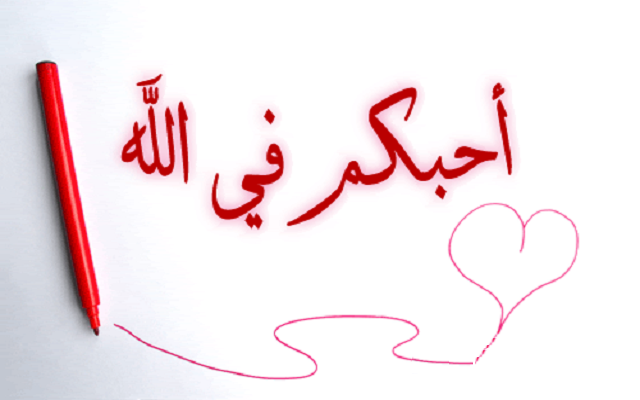 أحبكم في الله